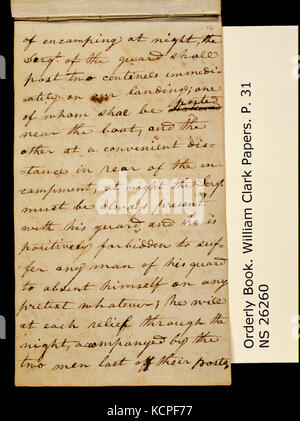 16
of encamping at night, the
Sergt. of the guard shall
post two centinels immedi-
ately on our landing; one
of whom shal be posted
near the boat, and the
other at a convenient dis-
tance in rear of the en-
campment; at night the Sergt.
must be always present
with his guard, and he is
positively forbidden to suf-
fer any man of his guard
to absent himself on any
pretext whatever; he will
at each relief through the
night, acompanyed by the
two men last off their posts,
Orderly Book. William Clark Papers. P. 31
NS 26260
alamy
a
Image ID: KCPF77
www.alamy.com